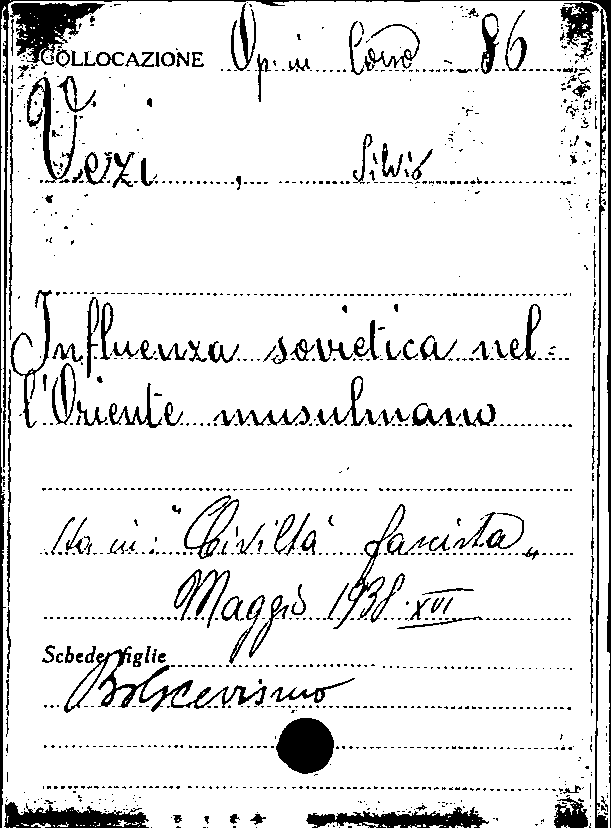 COLLOCAZIONE Op. in Corso - 86
Vezi, Silvio
Influenza sovietica nel=
l'Oriente musulmano
Sta in: "Civiltà fascista„
Maggio 1938·XVI
Schede figlie
Bolscevismo